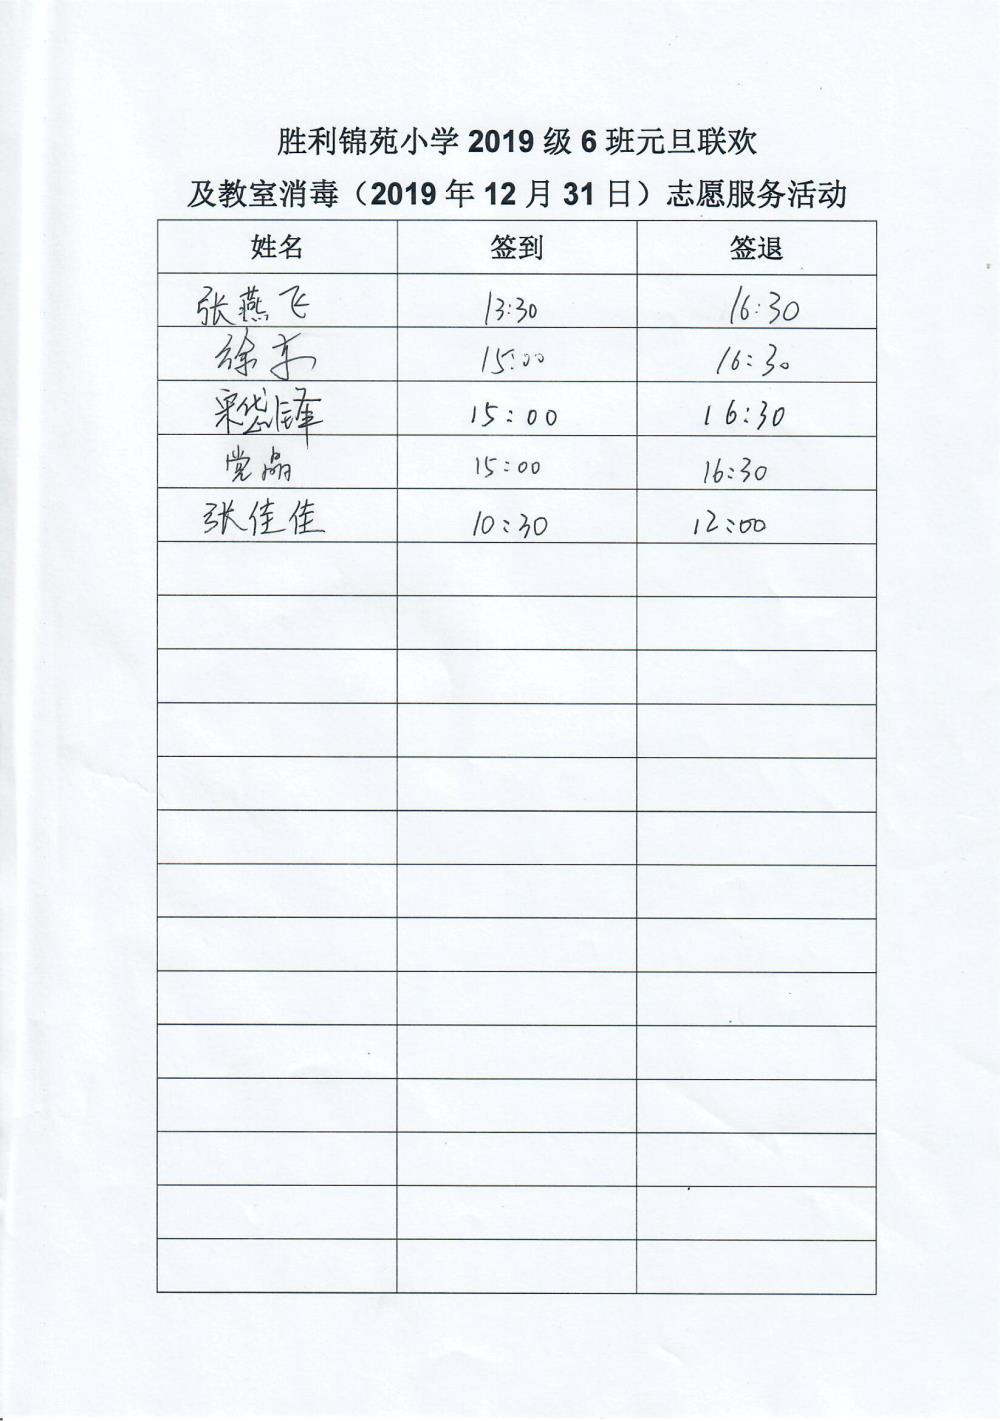 胜利锦苑小学 2019 级 6 班元旦联欢
及教室消毒（2019 年 12 月 31 日）志愿服务活动
姓名 签到 签退
张燕飞 13:30 16:30
徐东 15:00 16:30
15:00 16:30
党晶 15:00 16:30
张佳佳 10:30 12:00